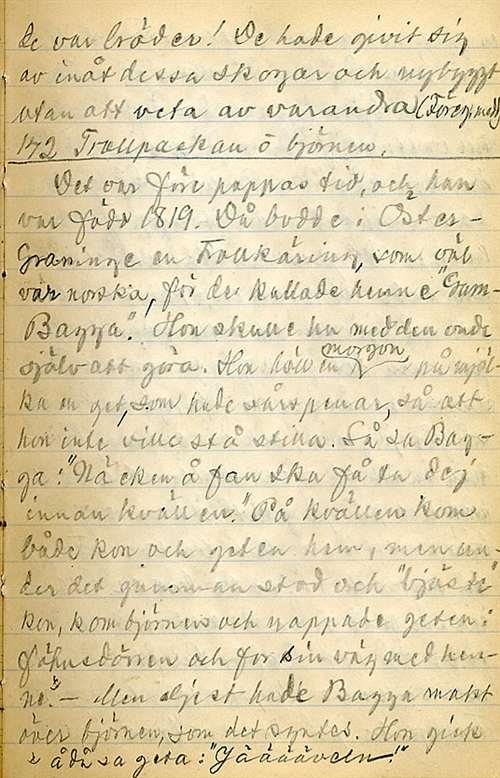 de var bröder! De hade givit sig
av inåt dessa skogar och nybyggt
utan att veta av varandra (Föreg. medd)
142 Trollpackan o björnen.
Det var före pappas tid, och han
var född 1819. Då bodde i Öster-
Graninge en Trollkäring, som väl
var norska, för de kallade henne "Gam-
Bagga". Hon skulle ha med den onde
själv att göra. Hon höll en morgon på mjöl-
ka en get, som hade sårspenar, så att
hon inte ville stå stilla. Så sa Bag-
ga: "Näcken å fan ska få ta dej
innan kvällen." På kvällen kom
både kon och geten hem, men un-
der det gumman stod och "bjäste"
kon, kom björnen och nappade geten i
fähusdörren och for sin väg med hen-
ne. – Men eljest hade Bagga makt
över björnen, som det syntes. Hon gick
å sa geta: "Jääääveln!"